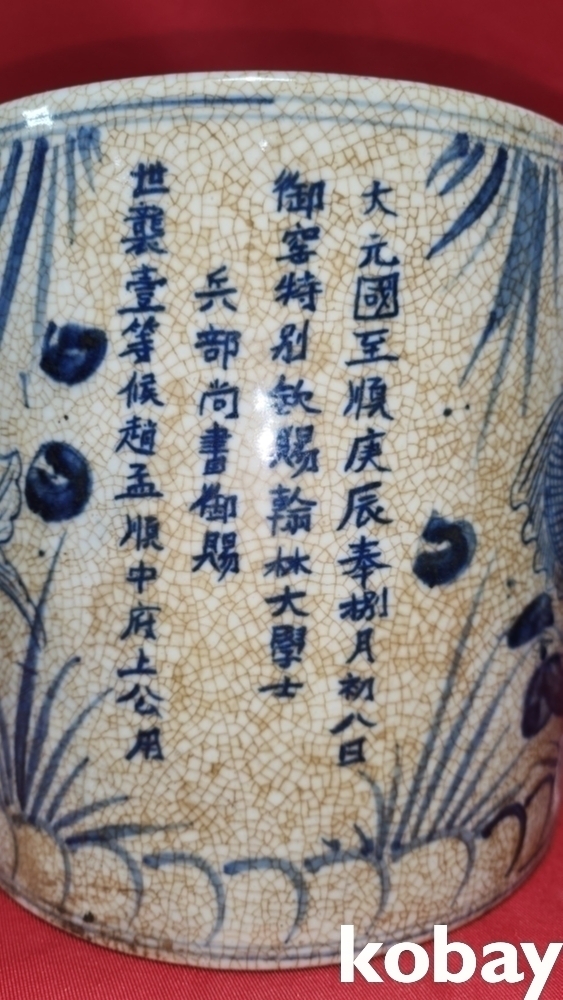 大元國至順庚辰奉捌月初八日
御窑特别欽賜翰林大學士
兵部尚書御賜
世襲壹等候趙孟順中府上公用
kobay